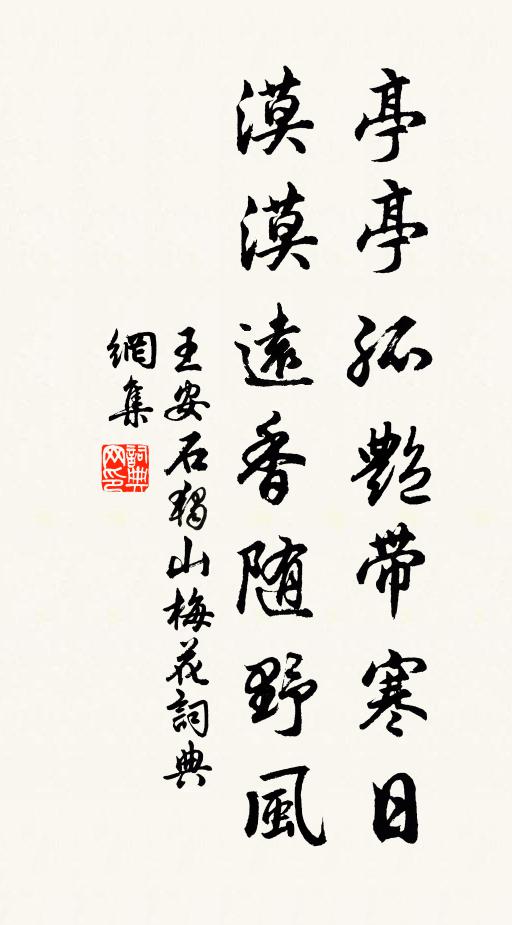 亭亭孤艷帶寒日
漠漠遠香随野風
王安石獨山梅花詞典
網集
詞典
网印